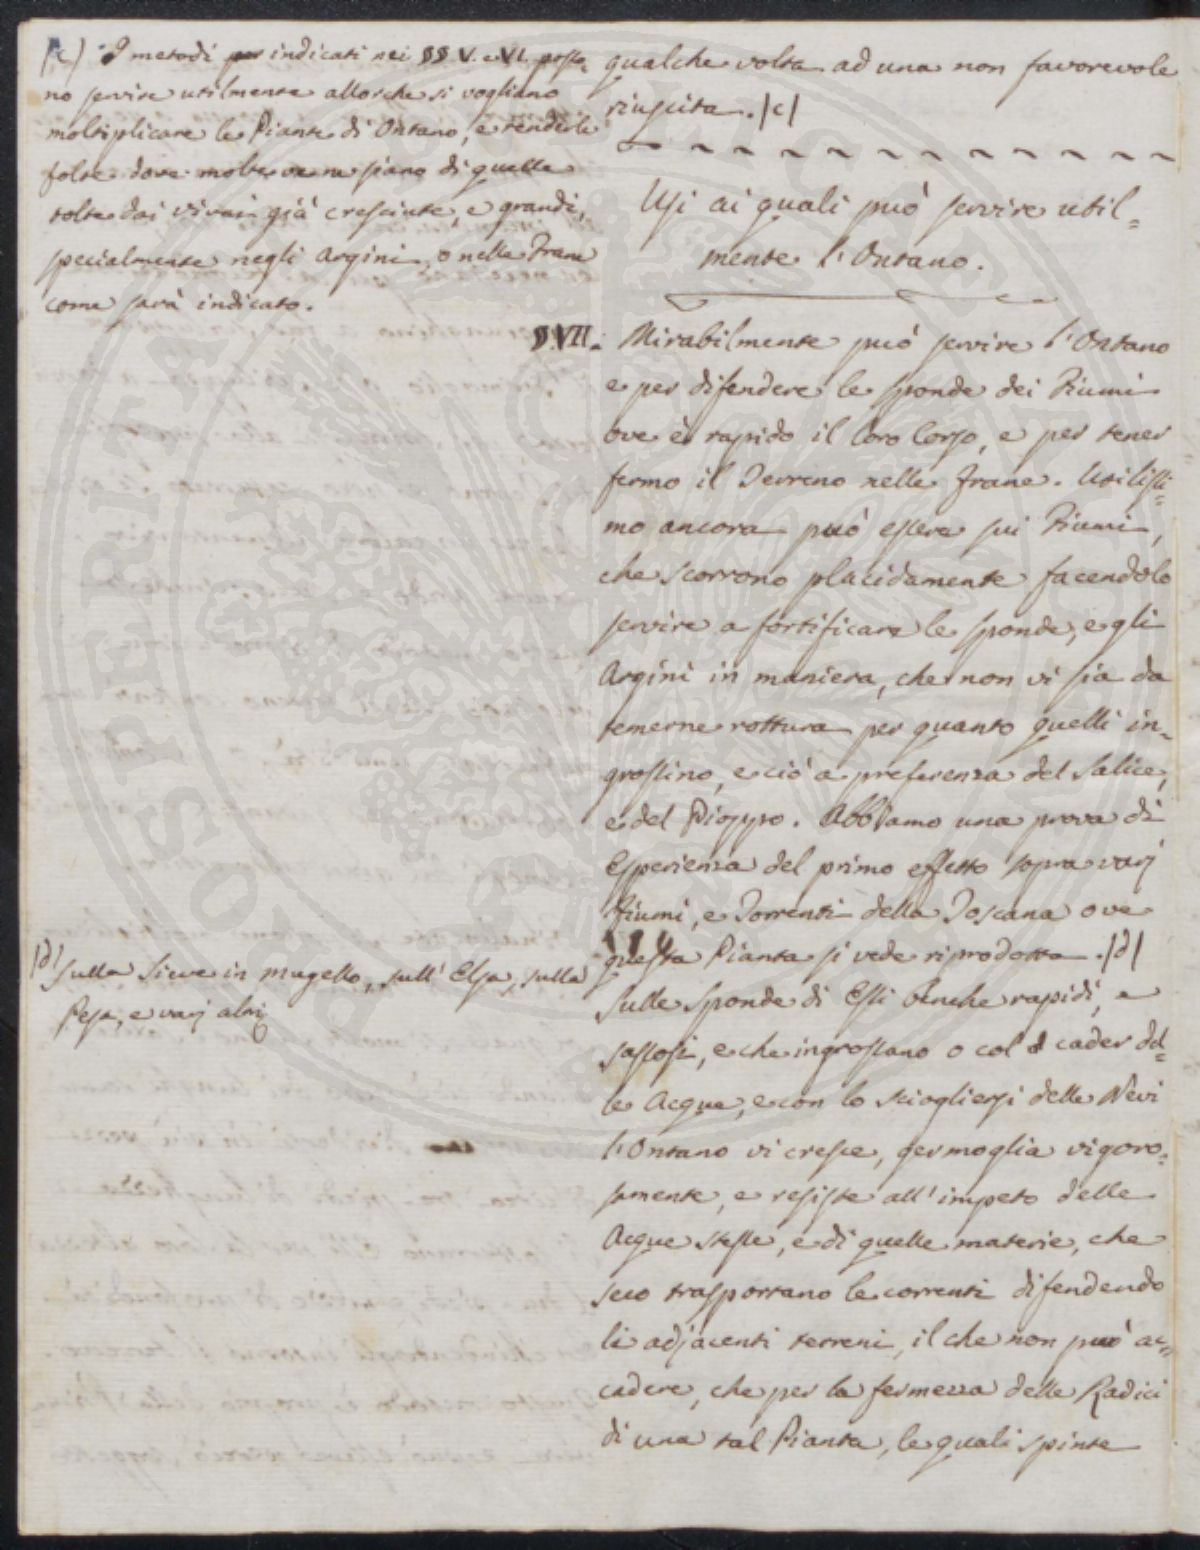 (c) I metodi indicati nei §§ V. e VI. posso-
no servire utilmente allorche si vogliono
moltiplicare le Piante di Ontano, e renderle
folte dove molte ve ne siano di quelle
tolte dai vivai già cresciute, e grandi,
specialmente negli Argini, o nelle Frane
come sarà indicato.
qualche volta ad una non favorevole
riuscita. (c)
Usi ai quali può servire util=
mente l'Ontano.
§. VII. Mirabilmente può servire l'Ontano
e per difendere le sponde dei Fiumi
ove è rapido il loro Corso, e per tener
fermo il Terreno nelle frane. Utilissi=
mo ancora può essere sui Fiumi,
che scorrono placidamente facendolo
servire a fortificare le sponde, e gli
Argini in maniera, che non vi sia da
temerne rottura per quanto quelli in=
grossino, e ciò a preferenza del Salice,
e del Pioppo. Abbiamo una prova di
Esperienza del primo effetto sopra varj
Fiumi, e Torrenti della Toscana ove
questa Pianta si vede riprodotta. (d)
(d) Sulla Sieve in Mugello, sull' Elsa, sulla
Pesa, e varj altri
Sulle sponde di Essi benche rapidi, e
sassosi, e che ingrossano o col cader del=
le Acque, e con lo sciogliersi delle Nevi
l'Ontano vi cresce, germoglia vigoro=
samente, e resiste all' impeto delle
Acque stesse, e di quelle materie, che
seco trasportano le correnti difendendo
li adjacenti terreni, il che non può ac=
cadere, che per la fermezza delle Radici
di una tal Pianta, le quali spinte